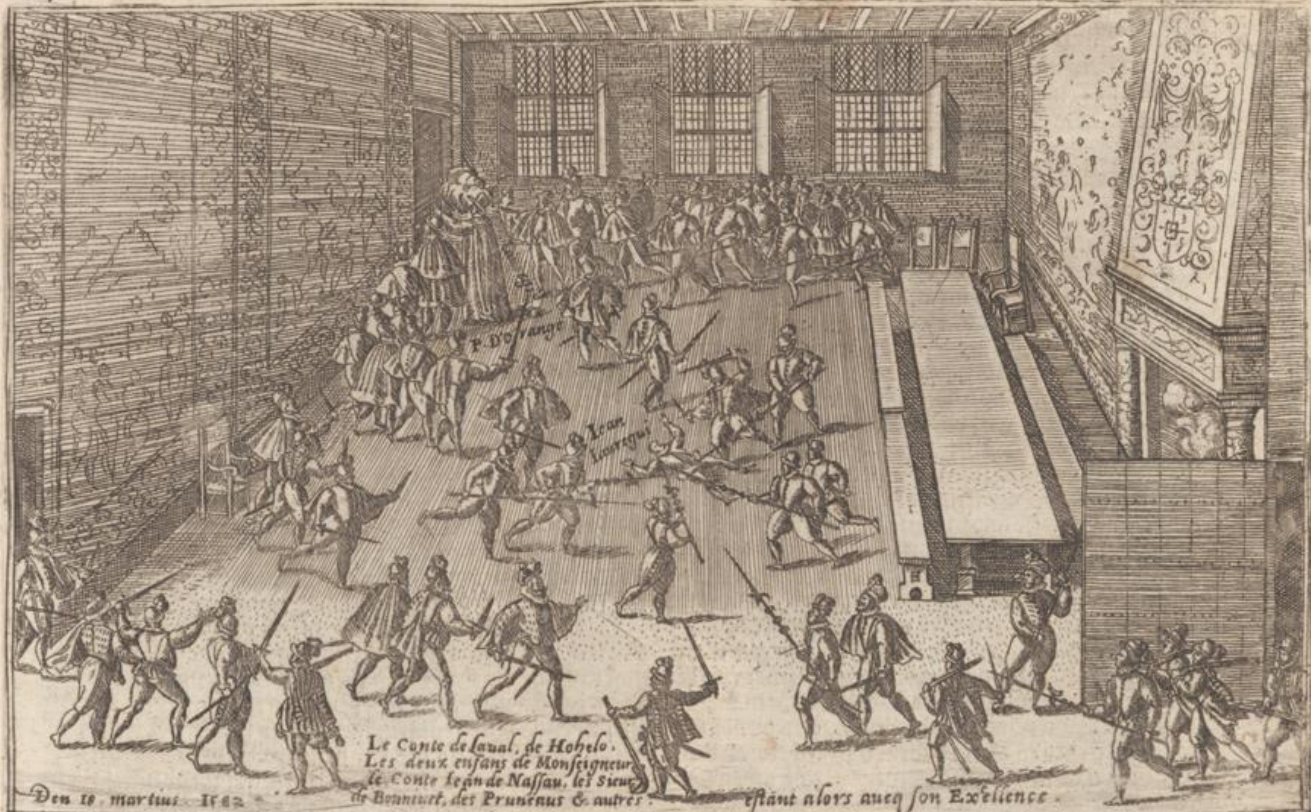 P. D'orange
Iean
Iauregui
Le Conte de Laual, de Hohelo.
Les deux enfans de Monseigneur
le Conte Iean de Nassau, les Sieurs
de Boniuet, des Pruneaus & autres. estant alors aueq son Exellence.
Den 18. martius. 1582